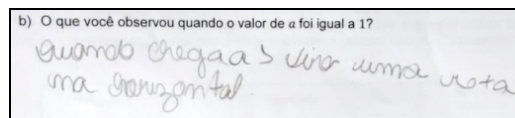 b) O que você observou quando o valor de a foi igual a 1?
quando chega a 1 vira uma reta
na horizontal.